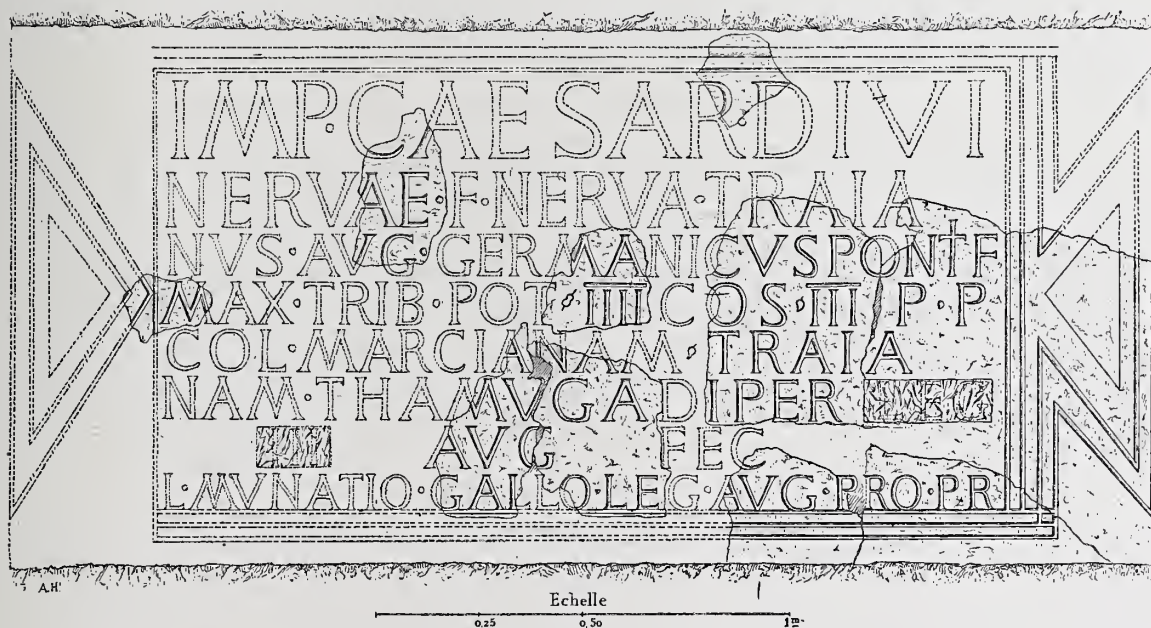 IMP·CAESAR DIVI
NERVAE·F·NERVA·TRAIA
NVS·AVG·GERMANICVS PONTIF
MAX·TRIB·POT·IIII COS·III·P·P
COL·MARCIANAM·TRAIA
NAM·THAMVGADI PER
AVG FEC
L·MVNATIO·GALLO·LEG·AVG·PRO·PR
A.H.
Echelle
0,25 0,50 1m.